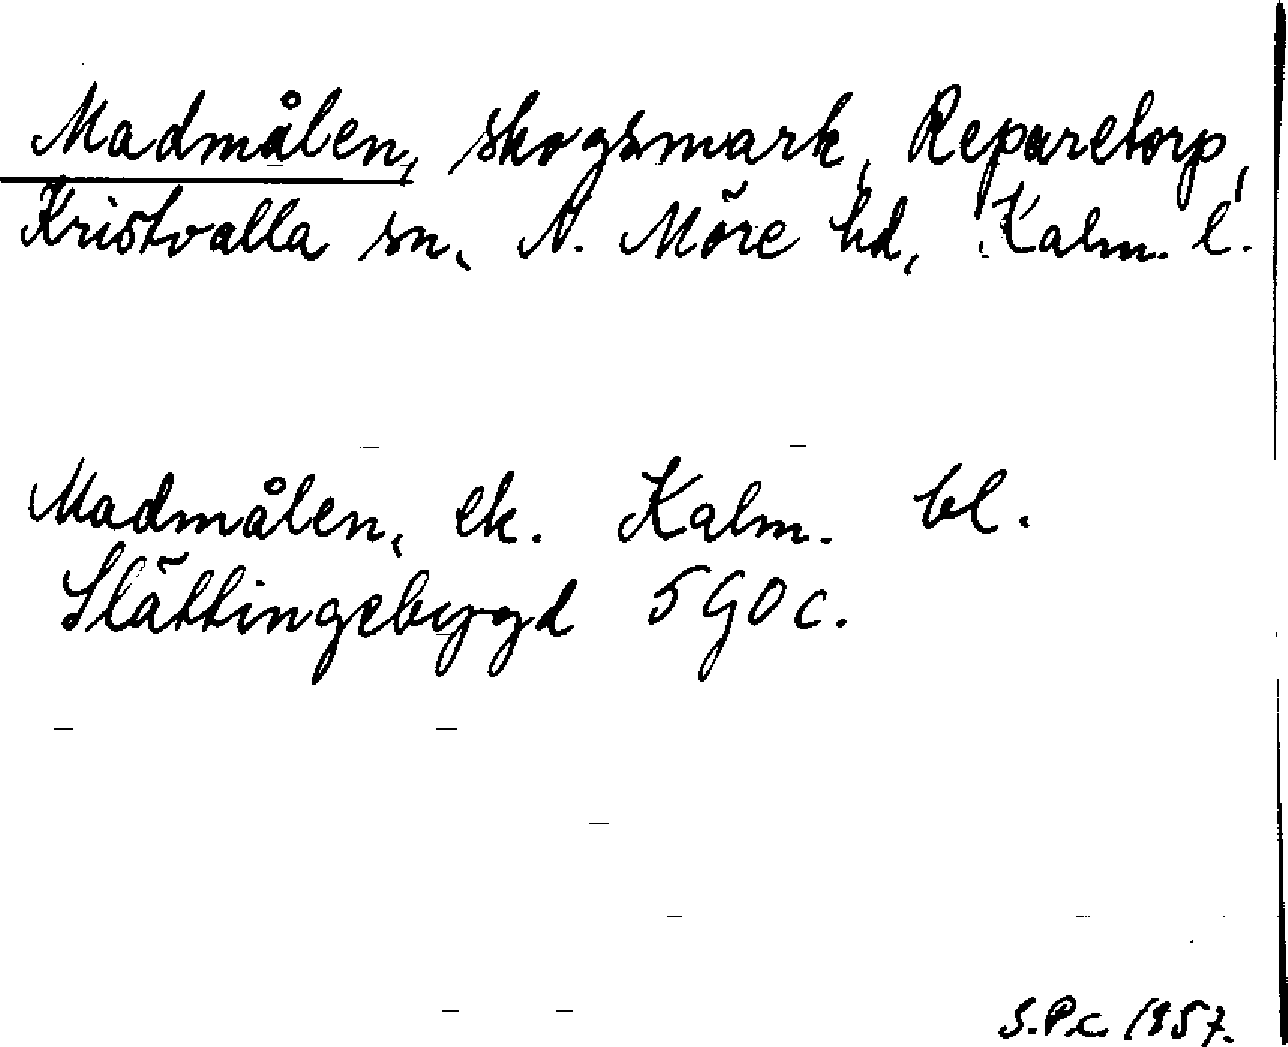 Madmålen, skogsmark, Reparetorp,
Kristvalla sn, N. Möre hd, Kalm. l.
Madmålen, ek. Kalm. bl.
Slättingebygd 5 G 0 c.
S.P.c. 1957.